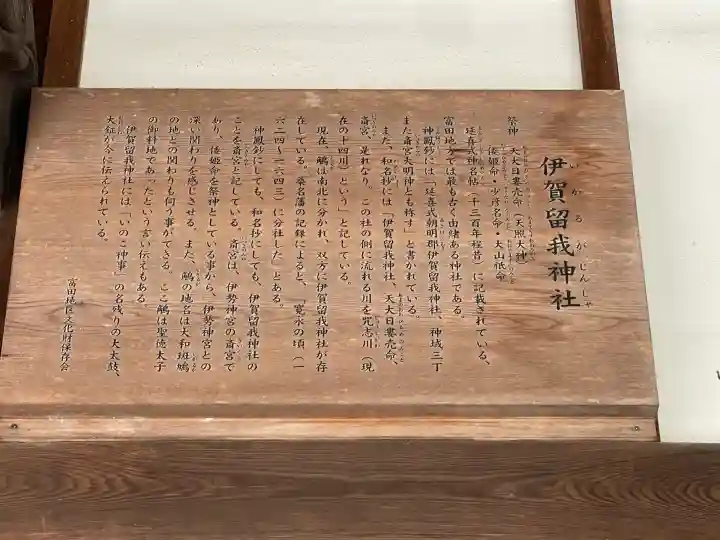 伊賀留我神社
いかるがじんしゃ
祭神 天大日孁売命(天照大神)
倭姫命・少彦名命・大山祇命
延喜式神名帖(千三百年程昔)に記載されている、
富田地方では最も古く由緒ある神社である。
神鳳鈔には「延喜式朝明郡伊賀留我神社、神域三丁
また斎宮大明神とも称す」と書かれている。
また、和名抄には「伊賀留我神社、天大日孁売命、
斎宮、是れなり、この社の側に流れる川を咒志川(現
在の十四川)という」と記している。
現在、鵤は南北に分かれ、双方に伊賀留我神社が存
在している。桑名藩の記録によると、「寛永の頃(一
六二四〜一六四三)に分社した」とある。
神鳳鈔にしても、和名抄にしても、伊賀留我神社の
ことを斎宮と記している。斎宮は、伊勢神宮の斎宮で
あり、倭姫命を祭神としている事から、伊勢神宮との
深い関わりを感じさせる。また、鵤の地名は大和斑鳩
の地との関わりも伺う事ができる。ここ鵤は聖徳太子
の御料地であったという言い伝えもある。
伊賀留我神社には「いのこ神事」の名残りの大太鼓、
大鉦が今に伝えられている。
富田地区文化財保存会